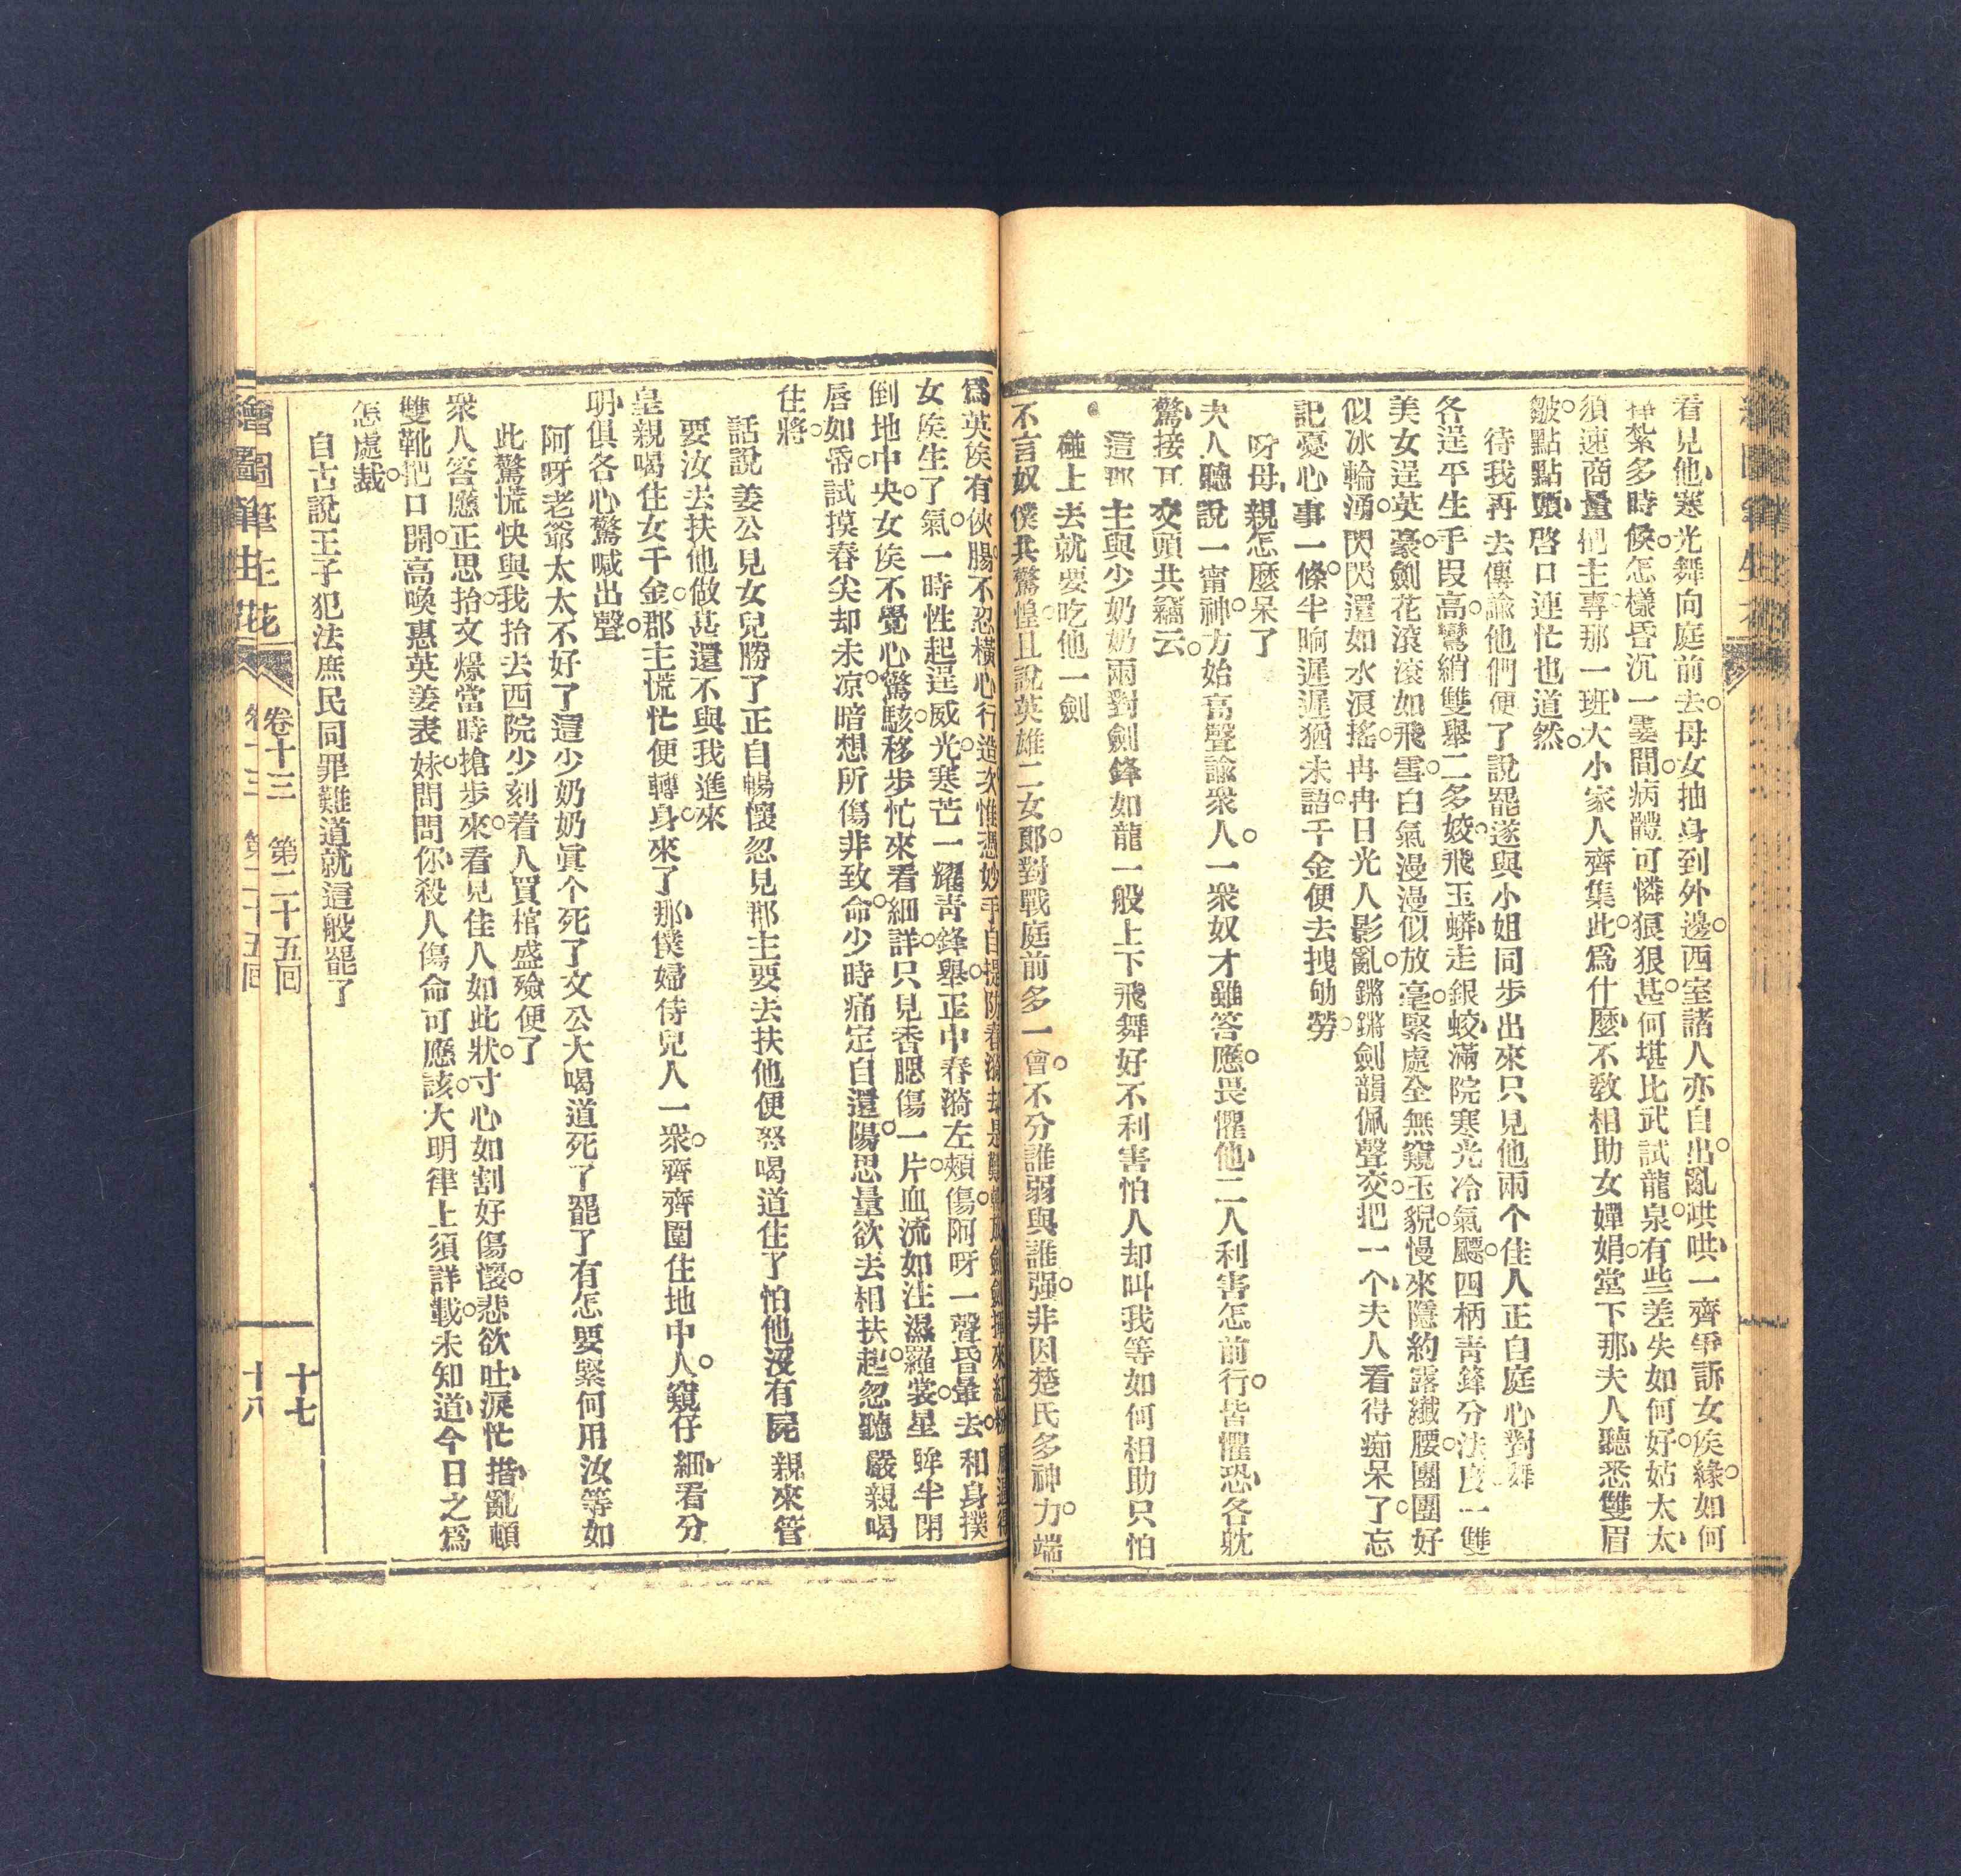 看見他寒光舞向庭前去。母女抽身到外邊。西室諸人亦自出。亂哄哄一齊爭訴女侯緣如何
紮多時候。怎樣昏沉一霎間。病體可憐狠狠甚。何堪比武試龍泉。有些差失如何好。姑太太
須速商量他主專那一班大小家人齊集此。爲什麼不敎相助女嬋娟。堂下那夫人聽悉雙眉
皺。點點頭啓口連忙也道然。
待我再去傳諭他們便了說罷遂與小姐同步出來只見他兩个佳人正自庭心對舞
各逞平生手段高。鸞綃雙舉二多姣。飛玉蟒走銀蛟滿院寒光冷氣颼。四柄靑鋒分法度一雙
美女逞英豪。劍花滾滾如飛雪。白氣漫漫似放毫。緊處全無窺玉貌。慢來隱約露纖腰。團團好
似冰輪湧。閃閃還如水浪搖。冉冉日光人影亂。鏘鏘劍韻佩聲交。把一个夫人看得痴呆了。忘
記憂心事一條。半晌遲遲猶未語。千金便去拽劬勞。
呀母親怎麼呆了
夫人聽說一甯神。方始高聲諭衆人。一衆奴才雖答應。畏懼他二人利害怎前行。皆懼恐各躭
驚接耳交頭共竊云。
這郡主與少奶奶兩對劍鋒如龍一般上下飛舞好不利害怕人却叫我等如何相助只怕
碰上去就要吃他一劍
不言奴僕共驚惶。且說英雄二女郎。對戰庭前多一會。不分誰弱與誰强。非因楚氏多神力。端
爲英侯有俠腸。不忍橫心行造次惟憑妙手自提防春漪却是
女侯生了氣。一時性起逞威光。寒芒一耀靑鋒舉。正中春漪左頰傷。阿呀一聲昏暈去。和身撲
倒地中央。女侯不覺心驚駭。移步忙來看細詳。只見香腮傷一片。血流如注濕羅裳。星眸半閉
唇如帋。試摸春尖却未凉。暗想所傷非致命。少時痛定自還陽。思量欲去相扶起。忽聽嚴親喝
住將。
話說姜公見女兒勝了正自暢懷忽見郡主要去扶他便怒喝道住了怕他沒有屍親來管
要汝去扶他做甚還不與我進來
皇親喝住女千金。郡主慌忙便轉身。來了那僕婦侍兒人一衆。齊齊圍住地中人。窺仔細看分
明俱各心驚喊出聲。
阿呀老爺太太不好了這少奶奶眞个死了文公大喝道死了罷了有怎要緊何用汝等如
此驚慌快與我抬去西院少刻着人買棺盛殮便了
衆人答應正思抬。文爆當時搶步來。看見佳人如此狀。寸心如割好傷懷。悲欲吐淚忙揩亂頓
雙靴把口開。高喚惠英姜表妹。問問你殺人傷命可應該。大明律上須詳載。未知道今日之爲
怎處裁。
自古說王子犯法庶民同罪難道就這般罷了
繪圖筆生花 卷十三 第二十五回 十七
繪圖筆生花 卷十三 第二十五回 十八